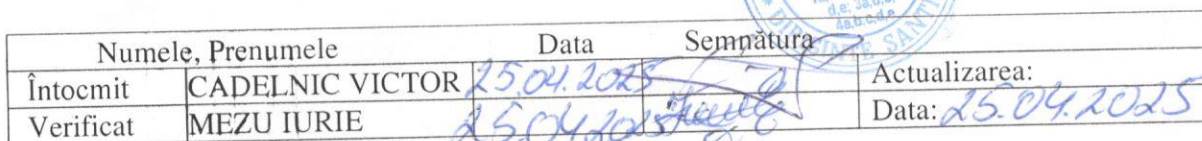 d,e; 3a,b,c,
4a,b,c,d,e
DIRIGINTE SANTI
Numele, Prenumele Data Semnătura
Întocmit CADELNIC VICTOR 25.04.2025 Actualizarea:
Verificat MEZU IURIE 25.04.2025 Data: 25.04.2025